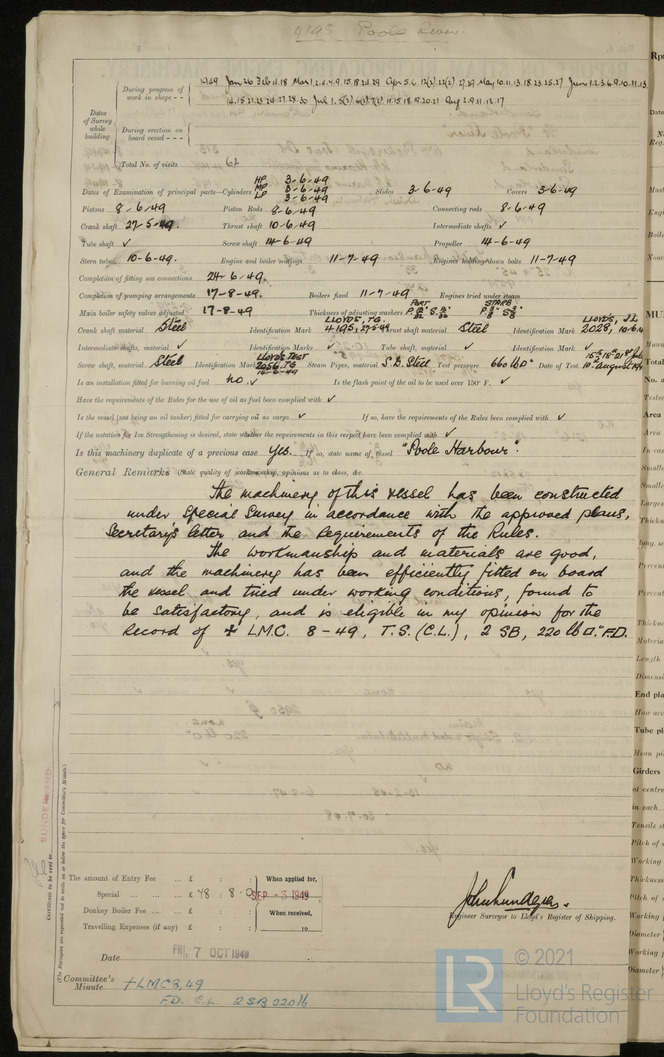 4195 Poole River.
Dates of Survey while building
During progress of work in shops - -
1949 Jan 26 Feb 4.18 Mar 1.2.4.9.15.18.24.29 Apr 5.6 12(2).22(2).27.29 May 10.11.13.18.23.25.27 Jun 1.2.3.6.9.10.11.13
14.15.21.23.24.27.28.30 Jul 1.5(2).6(2).7(2).11.15.18.19.20.21 Aug 2.9.11.12.17
During erection on board vessel - - -
Total No. of visits 61
Dates of Examination of principal parts—Cylinders HP 3-6-49 MP 3-6-49 LP 3-6-49 Slides 3-6-49 Covers 3-6-49
Pistons 8-6-49 Piston Rods 8-6-49 Connecting rods 8-6-49
Crank shaft 27-5-49. Thrust shaft 10-6-49 Intermediate shafts ✓
Tube shaft ✓ Screw shaft 14-6-49 Propeller 14-6-49
Stern tube 10-6-49. Engine and boiler seatings 11-7-49 Engines holding down bolts 11-7-49
Completion of fitting sea connections 24-6-49.
Completion of pumping arrangements 17-8-49. Boilers fixed 11-7-49 Engines tried under steam
Main boiler safety valves adjusted 17-8-49 Thickness of adjusting washers PORT STARB
Crank shaft material Steel Identification Mark LLOYDS, TG. 4195, 27-5-49 Thrust shaft material Steel Identification Mark LLOYDS, 2028, 10/6/4
Intermediate shafts, material ✓ Identification Marks ✓ Tube shaft, material ✓ Identification Mark ✓
Screw shaft, material Steel Identification Mark LLOYDS TEST 2056, TG 14-6-49 Steam Pipes, material S.D. Steel Test pressure 660 lb □" Date of Test 15th 18th 21st July 10th August 194
Is an installation fitted for burning oil fuel No. ✓ Is the flash point of the oil to be used over 150° F. ✓
Have the requirements of the Rules for the use of oil as fuel been complied with ✓
Is the vessel (not being an oil tanker) fitted for carrying oil as cargo ✓ If so, have the requirements of the Rules been complied with ✓
If the notation for Ice Strengthening is desired, state whether the requirements in this respect have been complied with ✓
Is this machinery duplicate of a previous case Yes. If so, state name of vessel "Poole Harbour".
General Remarks (State quality of workmanship, opinions as to class, &c.
The machinery of this vessel has been constructed
under Special Survey in accordance with the approved plans,
Secretary's letter and the Requirements of the Rules.
The workmanship and materials are good,
and the machinery has been efficiently fitted on board
the vessel and tried under working conditions, found to
be satisfactory, and is eligible in my opinion for the
Record of ✠ LMC. 8-49, T.S. (C.L.), 2 SB, 220 lb □." FD.
SUNDERLAND
Certificate to be sent to
(The Surveyors are requested not to write on or below the space for Committee's Minute.)
The amount of Entry Fee ... £ : : When applied for,
Special ... ... £ 48 : 8 : 0 SEP - 3 1949
Donkey Boiler Fee ... ... £ : : When received,
Travelling Expenses (if any) £ : : 19
Engineer Surveyor to Lloyd's Register of Shipping.
Date FRI. 7 OCT 1949
Committee's Minute + LMC 8,49
FD. C.L. 2SB 220 lb
LR © 2021
Lloyd's Register
Foundation